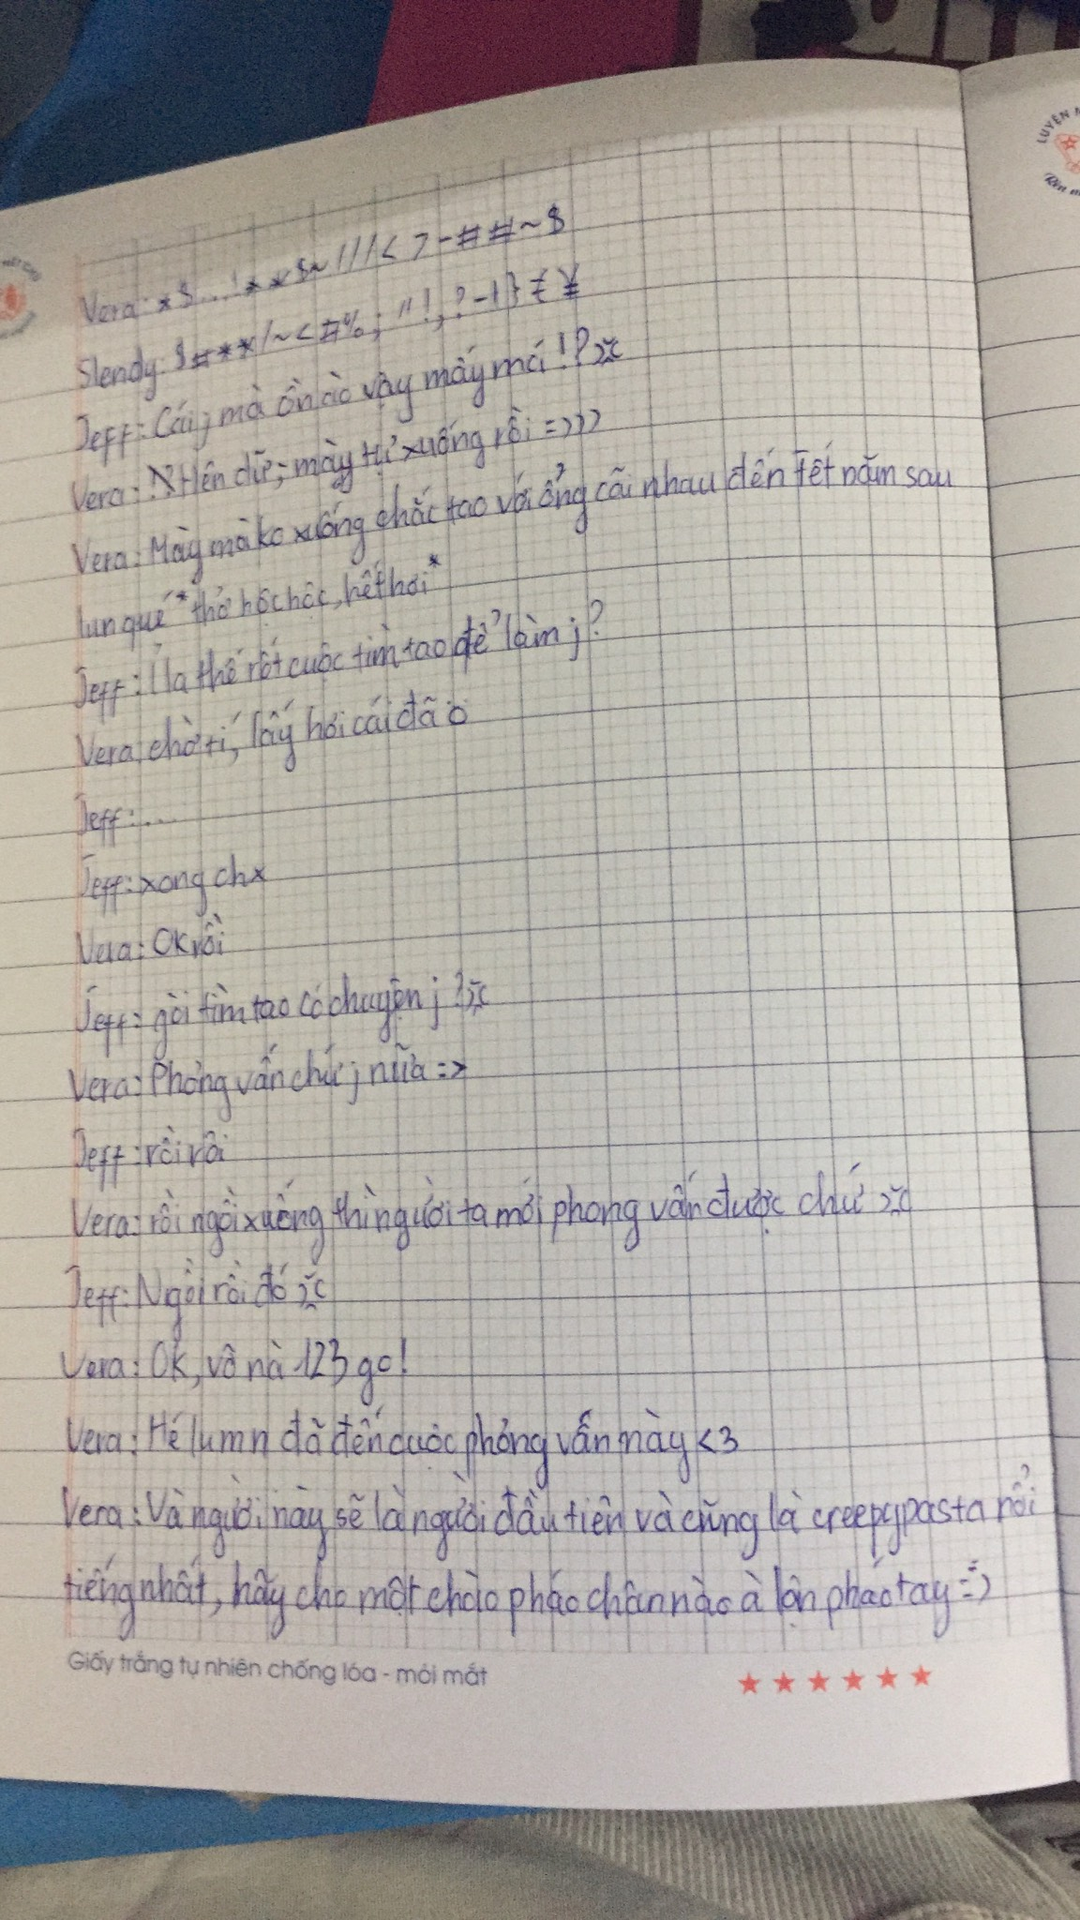 Vera: *$...!**$~///<>-##~$
Slendy: $#**/~<#%;"!,?-1}₤¥
Jeff: Cái j mà ồn ào vậy mấy má!?:<
Vera: hên dữ, mày tự xuống rồi =)))
Vera: Mày mà ko xuống chắc tao với ổng cãi nhau đến Tết năm sau
lun qué *thở hộc hộc, hết hơi*
Jeff: Ủa thế rốt cuộc tìm tao để làm j?
Vera: chờ tí, lấy hơi cái đã o
Jeff:...
Jeff: xong chx
Vera: OK rồi
Jeff: gòi tìm tao có chuyện j?:<
Vera: Phỏng vấn chứ j nữa :>
Jeff: rồi rồi
Vera: rồi ngồi xuống thì người ta mới phong vấn được chứ :<
Jeff: Ngồi rồi đó :<
Vera: OK, vô nà 123 go!
Vera: Hé lu mn đã đến cuộc phỏng vấn này <3
Vera: Và người này sẽ là người đầu tiên và cũng là creepypasta nổi
tiếng nhất, hãy cho một chào pháo chân nào à lộn pháo tay =)
Giấy trắng tự nhiên chống lóa - mỏi mắt
LUYỆN
Rèn